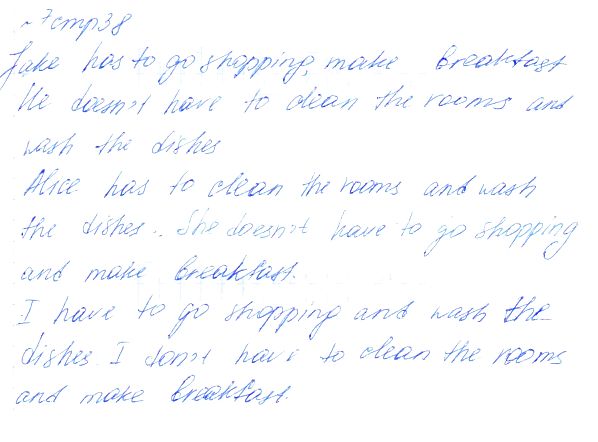 ~7стр38
Jake has to go shopping, make breakfast
He doesn't have to clean the rooms and
wash the dishes
Alice has to clean the rooms and wash
the dishes.. She doesn't have to go shopping
and make breakfast.
I have to go shopping and wash the
dishes. I don't have to clean the rooms
and make breakfast.